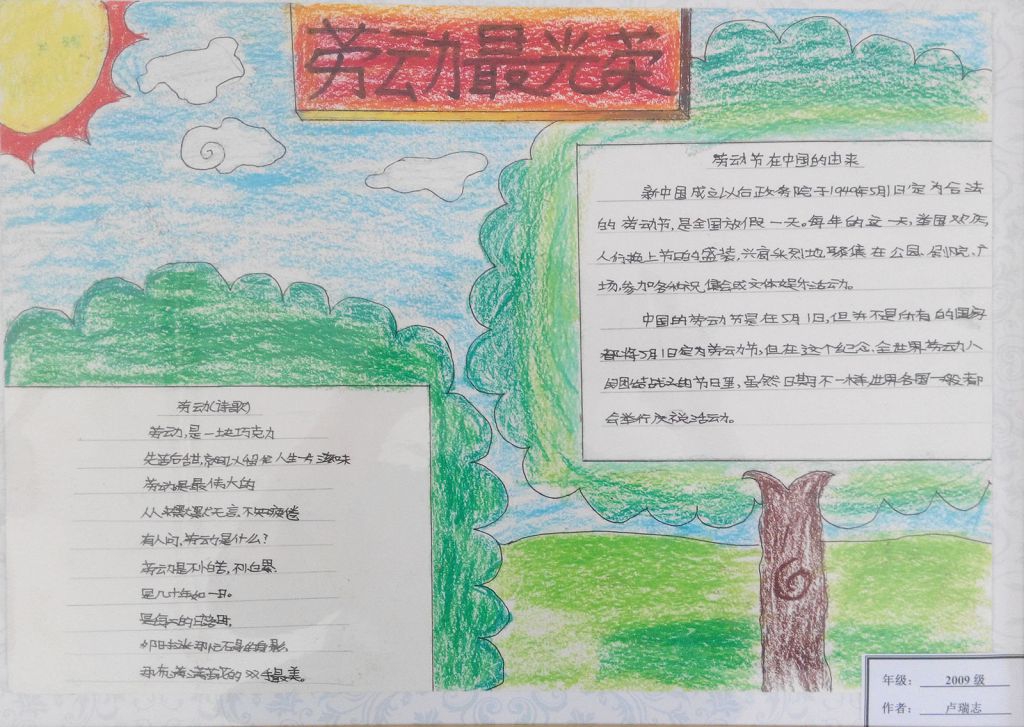 劳动最光荣
劳动节在中国的由来
新中国成立以后政务院于1949年5月1日定为合法
的劳动节,是全国放假一天。每年的这一天,举国欢庆,
人们换上节日的盛装,兴高采烈地聚集在公园、剧院、广
场,参加各种庆祝集会或文体娱乐活动。
中国的劳动节是在5月1日,但并不是所有的国家
都将5月1日定为劳动节,但在这个纪念、全世界劳动人
民团结战斗的节日里,虽然日期不一样,世界各国一般都
会举行庆祝活动。
劳动(诗歌)
劳动,是一块巧克力
先苦后甜,人生滋味
劳动是最伟大的
从来默默无言,不知疲倦
有人问,劳动是什么?
劳动是不怕苦,不怕累
是几十年如一日。
是每天的日
身影
那布满的双手最美。
年级: 2009级
作者: 卢瑞志